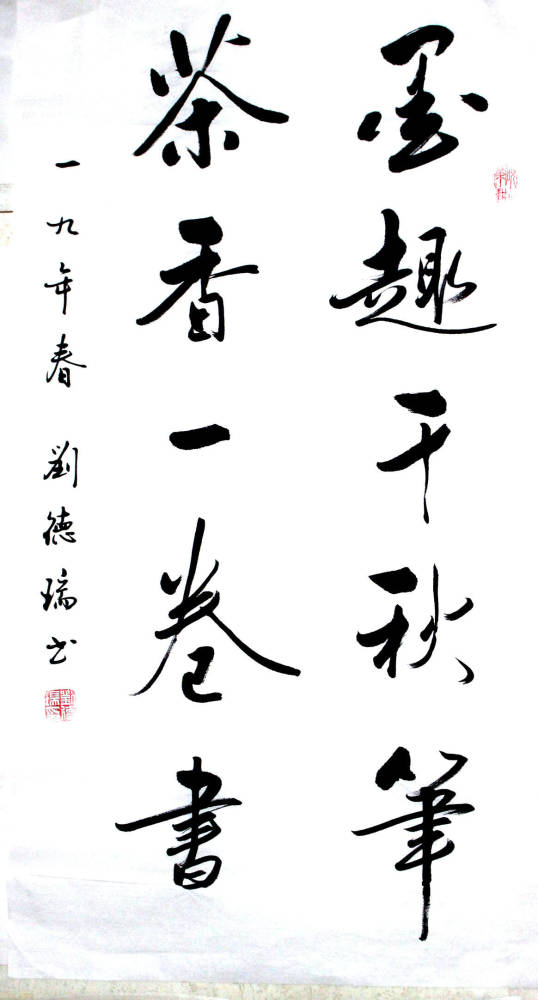 墨趣千秋筆
茶香一卷書
一九年春 劉德瑞书